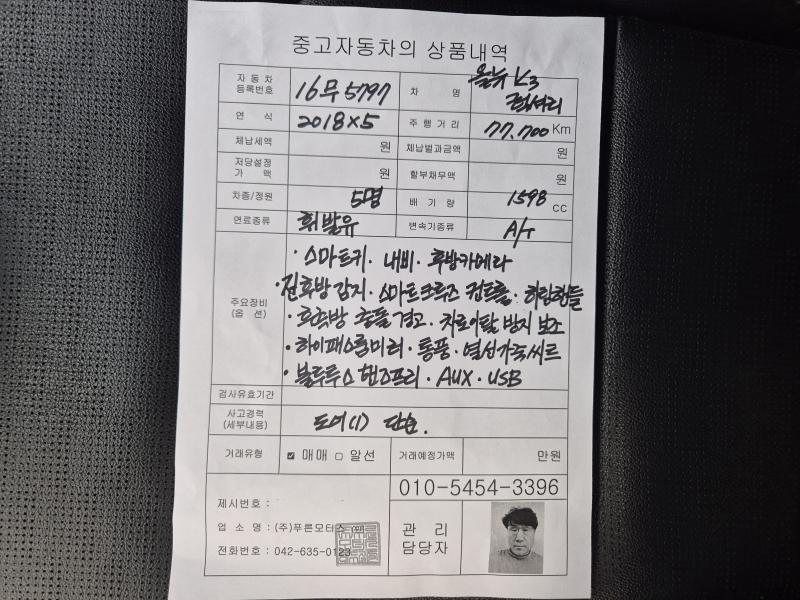 중고자동차의 상품내역
자동차
등록번호 16무5797 차 명 올뉴 K3
럭셔리
연 식 2018×5 주행거리 77.700 Km
체납세액 원 체납벌과금액 원
저당설정
가 액 원 할부채무액 원
차종/정원 5명 배 기 량 1598 CC
연료종류 휘발유 변속기종류 A/T
주요장비
(옵 션)
· 스마트키 · 내비 · 후방카메라
· 전후방감지 · 스마트크루즈 컨트롤 · 하랑핸들
· 후측방 충돌 경고 · 차로이탈 방지 보조
· 하이패스룸미러 · 통풍 · 열선가죽씨트
· 블루투스 핸즈프리 · AUX · USB
검사유효기간
사고경력
(세부내용) 도어(1) 단순.
거래유형 ☑ 매매 □ 알선 거래예정가액 만원
010-5454-3396
제시번호 :
업 소 명 : (주)푸른모터스
전화번호 : 042-635-0123
관 리
담당자